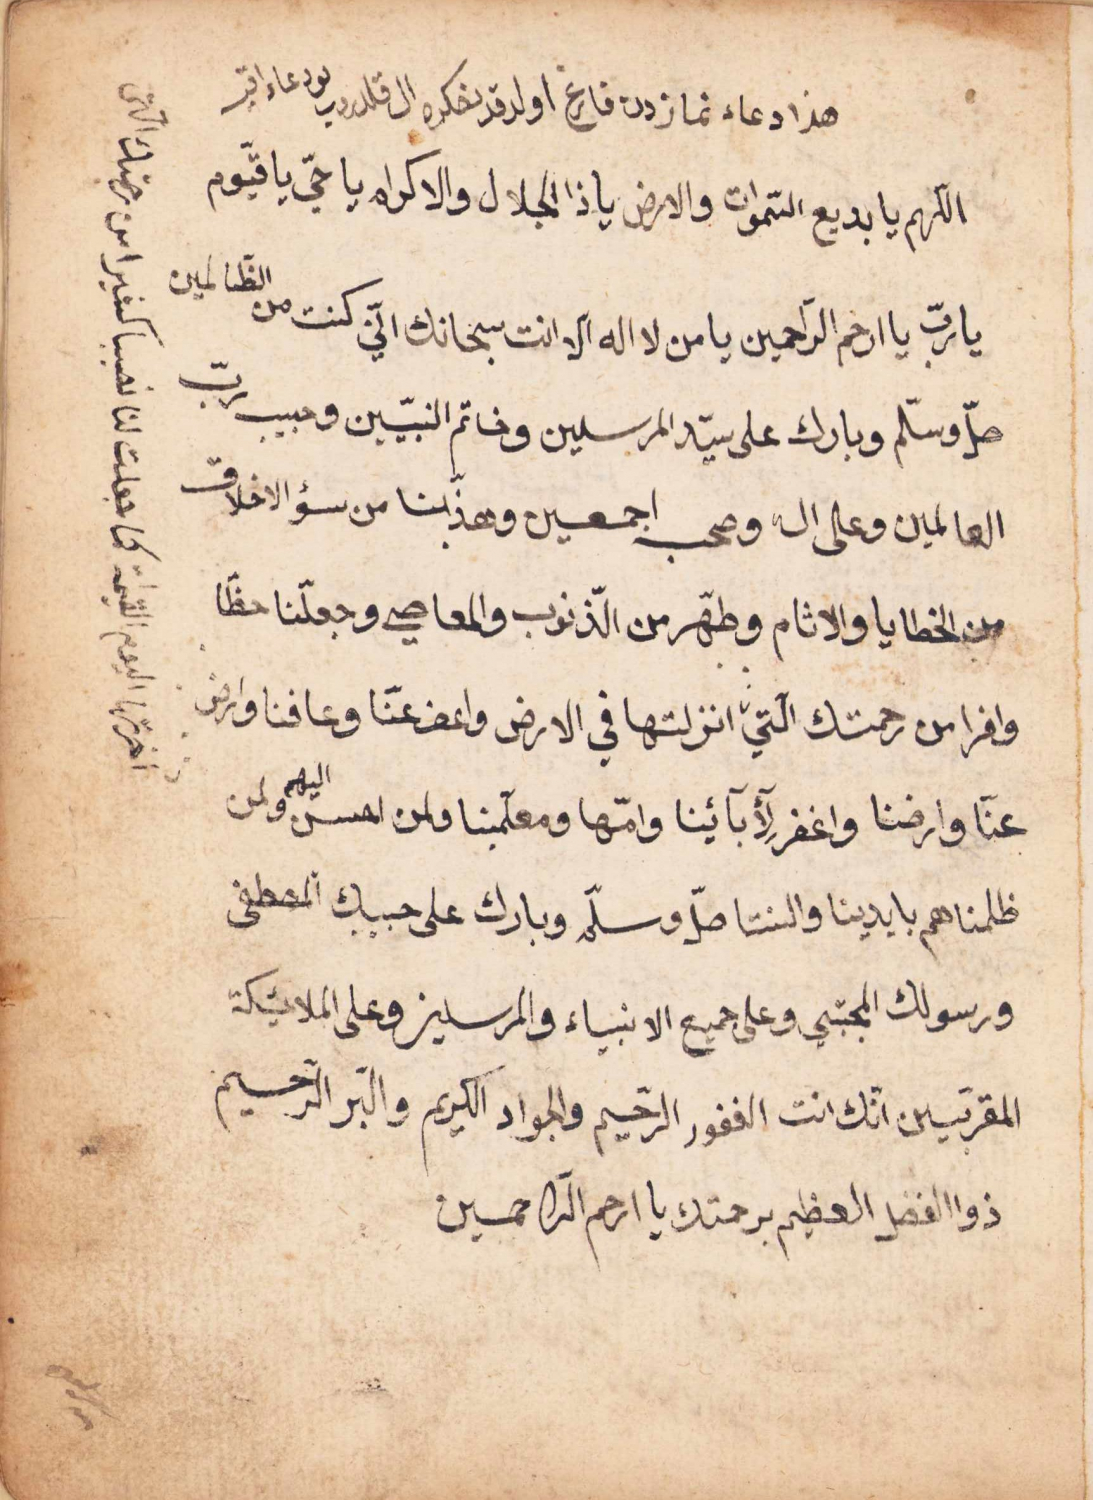 هذا دعاء نمازدن فارغ اولدقدنصكره ال قلدروب بو دعاء اقيه
اللهم يا بديع السّموات والارض ياذا الجلال والاكرام يا حيّ يا قيّوم
يا ربّ يا ارحم الرّاحمين يا من لا اله الّا انت سبحانك انّي كنت من الظّالمين
صلّ وسلّم وبارك على سيّد المرسلين وخاتم النبيّين وحبيب ربّ
العالمين وعلى اله وصحبه اجمعين وهذّبنا من سؤ الاخلاق
من الخطايا والاثام وطهّر من الذّنوب والمعاصي وجعلنا حظّا
وافرا من رحمتك الّتي انزلتها في الارض واعف عنّا وعافنا وارض
عنّا وارضنا واغفر لآبآئينا وامّها ومعلّمينا ولمن احسن اليهم ولمن
ظلمناهم بايدينا والسنتنا صلّ وسلّم وبارك على حبيبك المصطفى
ورسولك المجتبى وعلى جميع الانبياء والمرسلين وعلى الملائيكة
المقرّبين انّك انت الغفور الرّحيم والجواد الكريم والبّر الرّحيم
ذوا الفضل العظيم برحمتك يا ارحم الرّاحمين
كما جعلت لنا نصيبا كثيرا من رحمتك الّتي
اخرتها اليوم القيمة